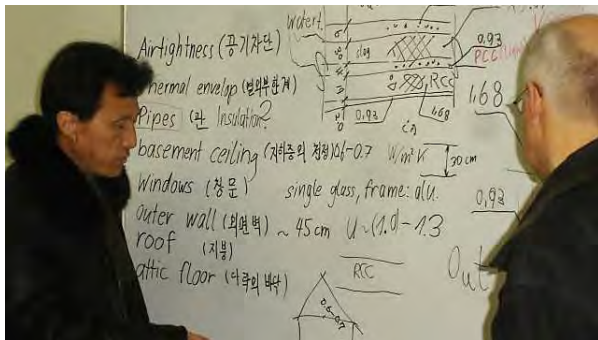 Watert.
Airtightness (공기차단)
Thermal envelop (법외부한계)
Pipes (관 Insulation?
basement ceiling (지하층의 천정) 0.6-0.7 W/m²K
Windows (창문) single glass, frame: alu.
outer wall (외면벽) ~ 45cm U~(1.0)-1.3
roof (지붕)
attic floor (다락의 바닥)
slag
RCC
0,93
1,68
0,93
PCC
1,68
30 cm
0,93
Out
RCC
0.6-0.7